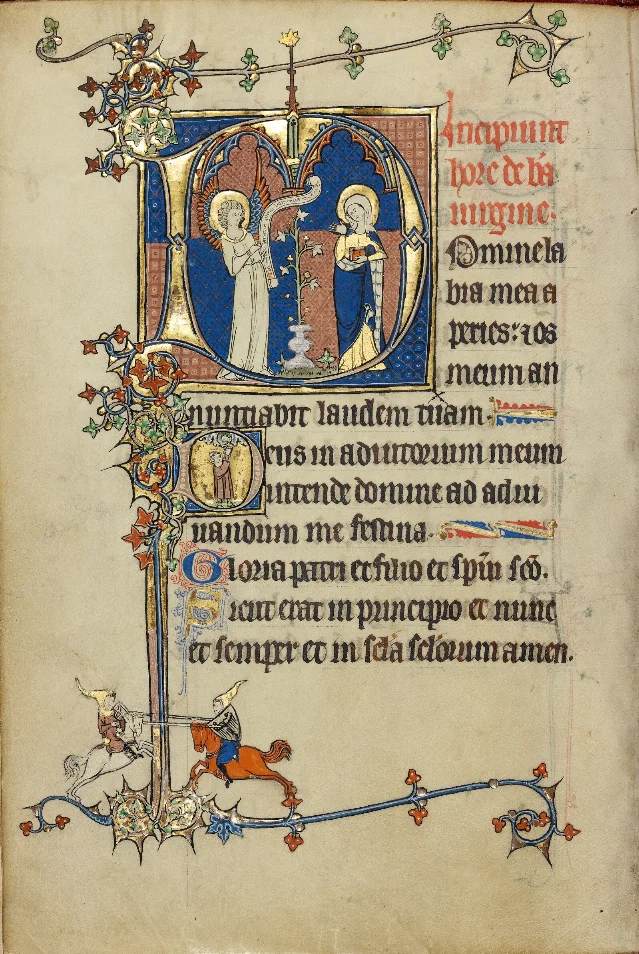 Incipiunt
hore de bā
uirgine.
Domine la
bia mea a
peries: ⁊ os
meum an
nuntiabit laudem tuam.
Deus in adiutorium meum
intende domine ad adiu
uandum me festina.
Gloria patri et filio et spiū scō.
Sicut erat in principio et nunc
et semper et in scła scłorum amen.